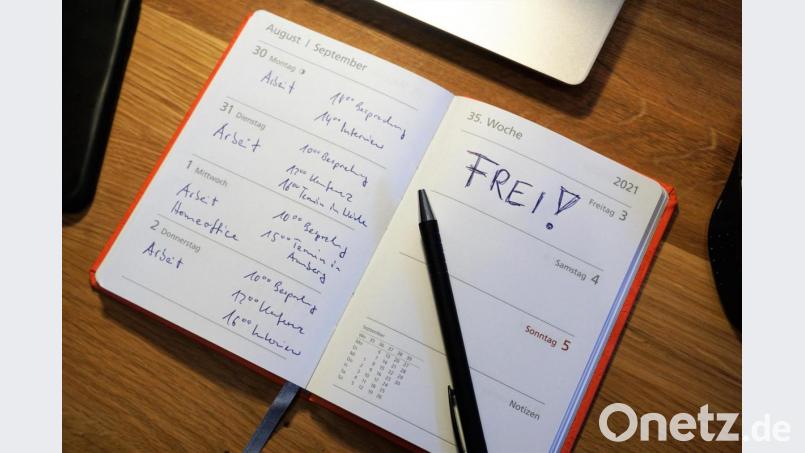 August | September
30 Montag
Arbeit
10⁰⁰ Besprechung
14⁰⁰ Interview
31 Dienstag
Arbeit
10⁰⁰ Besprechung
12⁰⁰ Konferenz
16⁰⁰ Termin in
1 Mittwoch
Arbeit
Homeoffice
10⁰⁰ Besprechung
15⁰⁰ Termin in
Amberg
2 Donnerstag
Arbeit
10⁰⁰ Besprechung
12⁰⁰ Konferenz
16⁰⁰ Interview
35. Woche
2021
Freitag 3
FREI!
Samstag 4
Sonntag 5
September
Notizen
Onetz.de